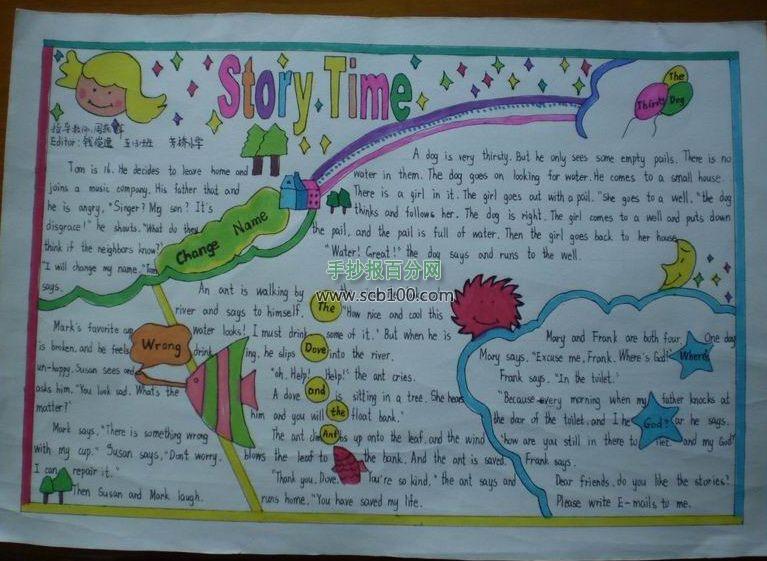 Story Time
The
Thirsty Dog
Editor:
Tom is 16. He decides to leave home and
joins a music company. His father that and
he is angry. "Singer? My son? It's
disgrace!" he shouts. "What do they
think if the neighbors know?"
"I will change my name." Tom
says.
Change Name
A dog is very thirsty. But he only sees some empty pails. There is no
water in them. The dog goes on looking for water. He comes to a small house.
There is a girl in it. The girl goes out with a pail. "She goes to a well." the dog
thinks and follows her. The dog is right. The girl comes to a well and puts down
the pail, and the pail is full of water. Then the girl goes back to her house
"Water! Great!" the dog says and runs to the well.
手抄报百分网
www.scb100.com
Mark's favorite cup
is broken, and he feels
un-happy. Susan sees and
asks him. "You look sad. What's the
matter?"
Mark says. "There is something wrong
with my cup." Susan says, "Don't worry.
I can repair it."
Then Susan and Mark laugh.
Wrong
An ant is walking by the
river and says to himself. "How nice and cool this
water looks! I must drink some of it." But when he is
drinking, he slips into the river.
"Oh, Help! Help!" the ant cries.
A dove is sitting in a tree. She hears
him and you will float bank."
The ant climbs up onto the leaf, and the wind
blows the leaf to the bank. And the ant is saved.
"Thank you, Dove. You're so kind," the ant says and
runs home. "You have saved my life.
The
Dove
and
the
Ant
Mary and Frank are both four. One day
Mary says, "Excuse me, Frank. Where's God?"
Frank says, "In the toilet."
"Because every morning when my father knocks at
the door of the toilet, and I he says.
'how are you still in there to and my God!'
Frank says.
Dear friends, do you like the stories?
Please write E-mails to me.
Where's
God?